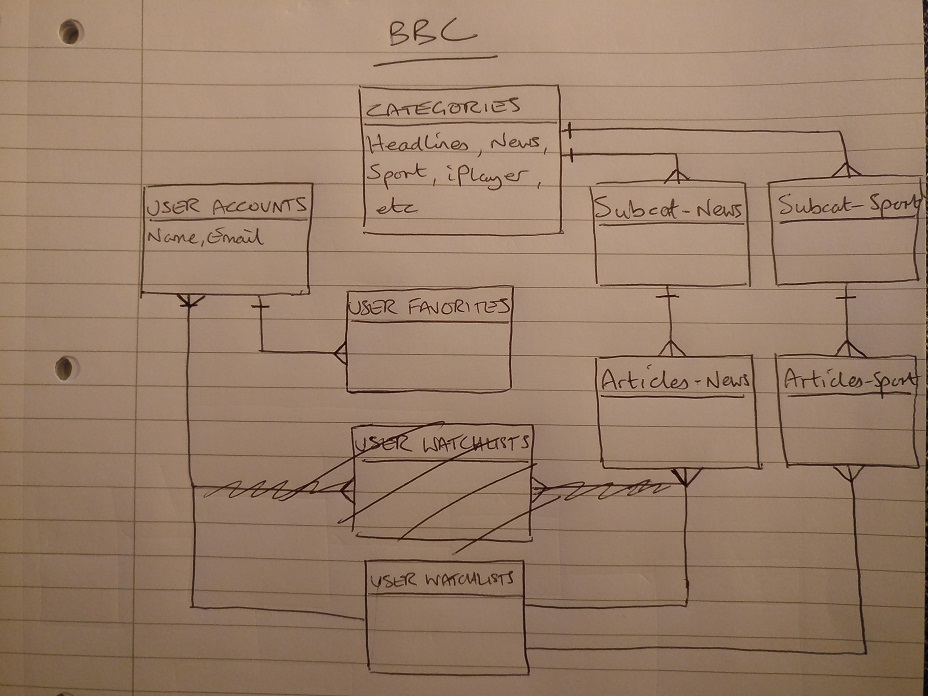 BBC
CATEGORIES
Headlines, News,
Sport, iPlayer,
etc
USER ACCOUNTS
Name, Email
Subcat-News
Subcat-Sport
USER FAVORITES
Articles-News
Articles-Sport
USER WATCHLISTS
USER WATCHLISTS